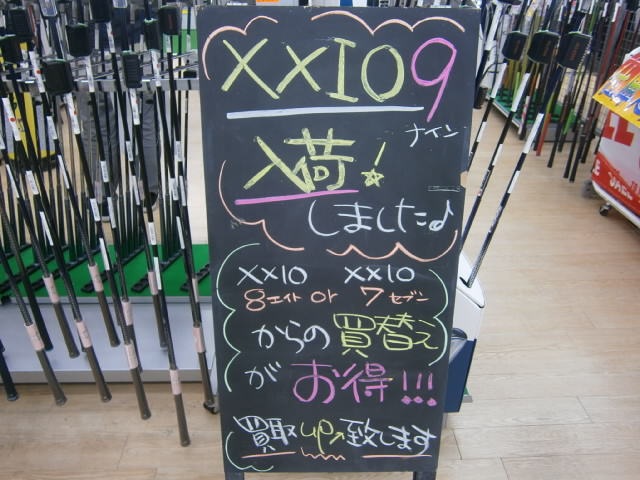 XXIO9
ナイン
入荷!
しました♪
XXIO XXIO
8エイト or 7セブン
からの買替え
がお得!!!
買取up↗致します